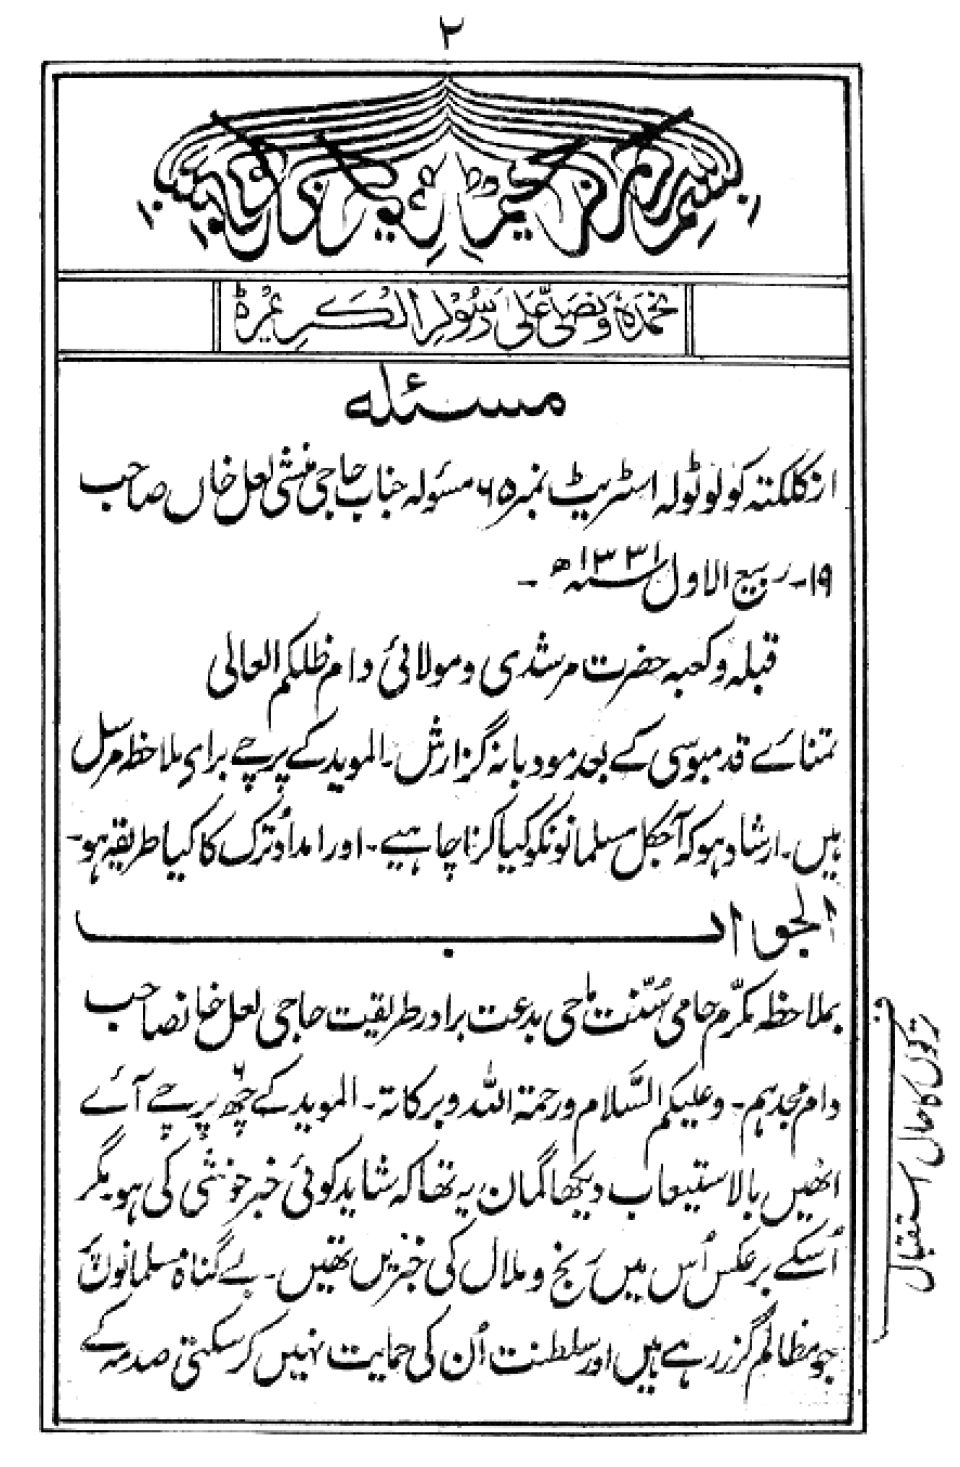 ۲
بسم اللہ الرحمن الرحیم
نحمدہ ونصلی علی رسولہ الکریم
مسئلہ
از کلکتہ کولوٹولہ اسٹریٹ نمبر ۶۵ مسئولہ جناب حاجی منشی لعل خاں صاحب
۱۹۔ ربیع الاول ۱۳۳۱ھ ۔
قبلہ و کعبہ حضرت مرشدی و مولائی دام ظلکم العالی
تمنائے قدمبوسی کے بعد مودبانہ گزارش۔ الموید کے پرچے برائے ملاحظہ مرسل
ہیں۔ ارشاد ہو کہ آجکل مسلمانونکو کیا کرنا چاہیے۔ اور امداد تُرک کا کیا طریقہ ہو۔
الجواب
بملاحظہ مکرّم حامی سُنّت ماحی بدعت برادر طریقیت حاجی لعل خانصاحب
دام مجدہم۔ وعلیکم السّلام ورحمۃ اللہ وبرکاتہ۔ الموید کے چھ۶ پرچے آئے
انھیں بالاستیعاب دیکھا گمان یہ تھا کہ شاید کوئی خبر خوشی کی ہو مگر
اُسکے برعکس اُس میں رنج و ملال کی خبریں تھیں۔ بے گناہ مسلمانوں پر
جو مظالم گزر رہے ہیں اور سلطنت اُن کی حمایت نہیں کر سکتی صدمہ کے
ترکوں کا حال استقبال